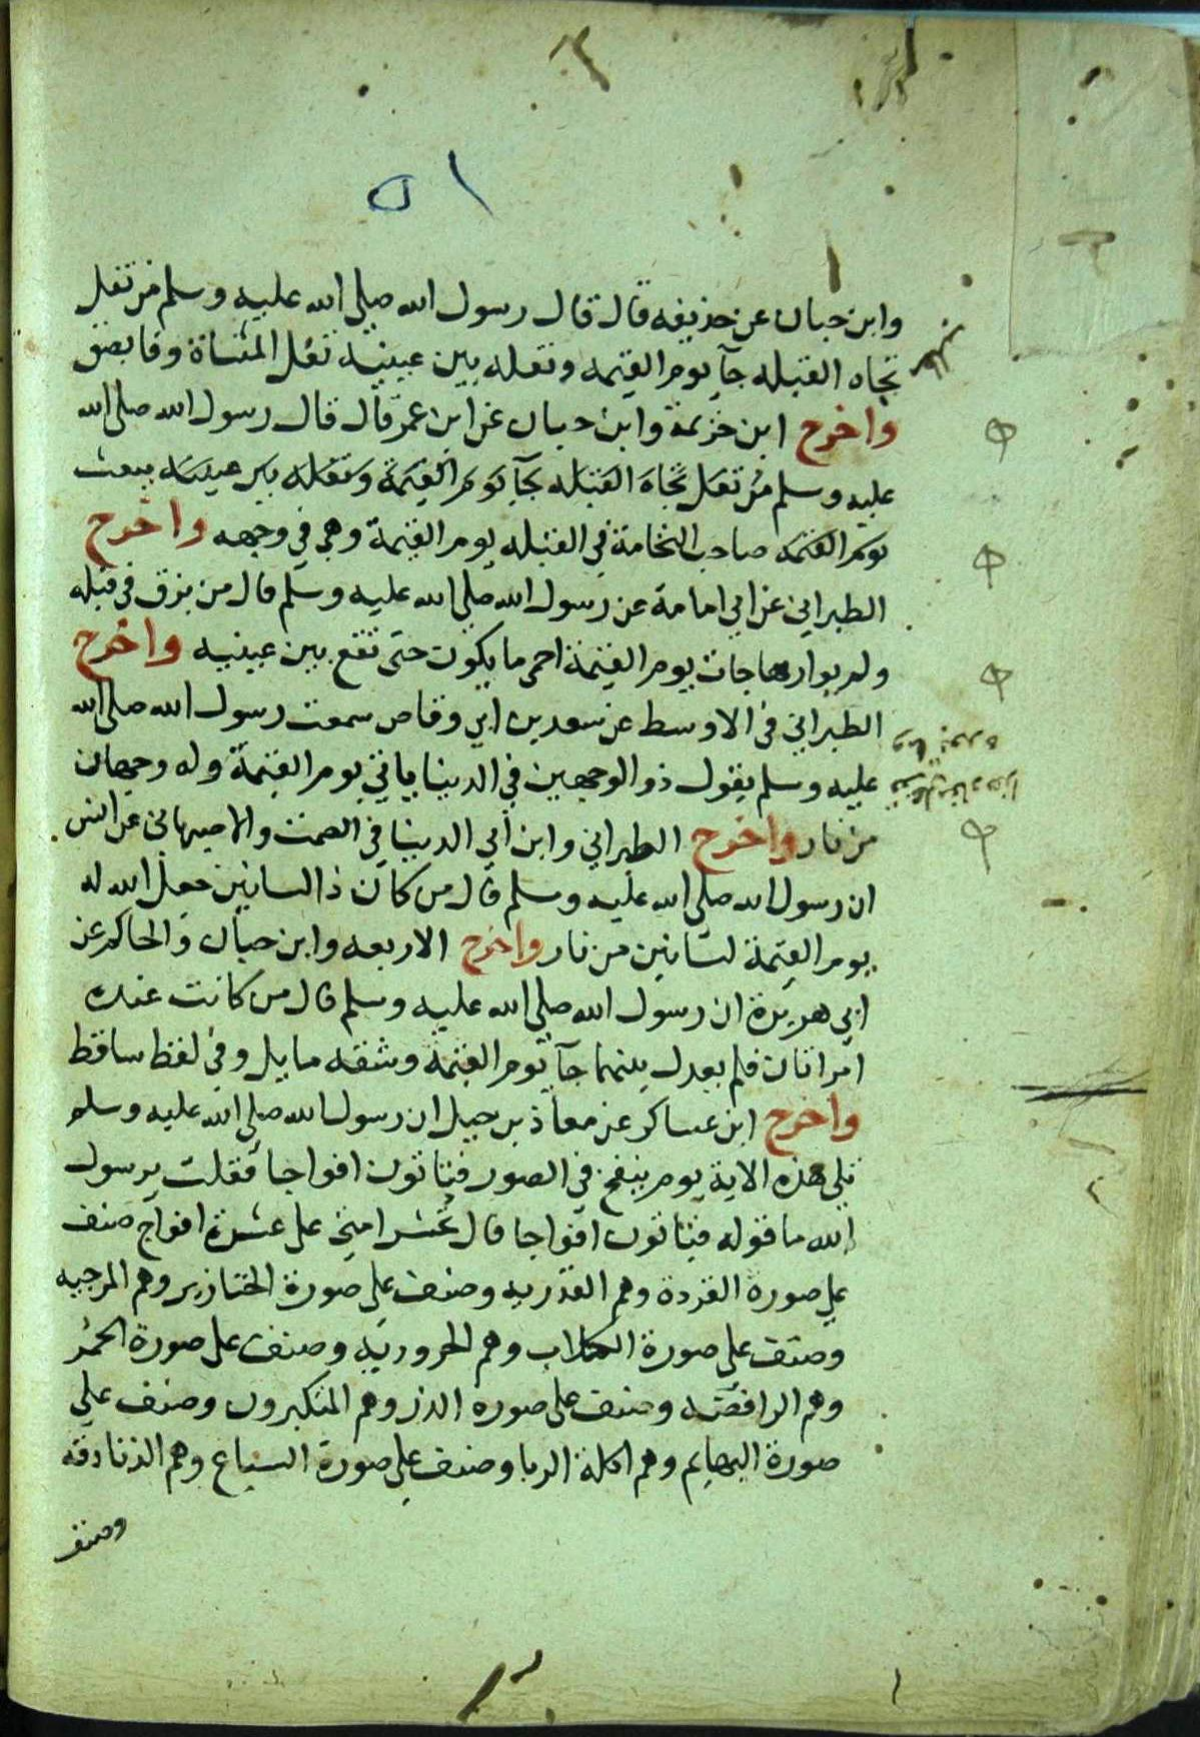 ٥١
وابن حبان عن حذيفه قال قال رسول الله صلى الله عليه وسلم من تفل
تجاه القبله جآ يوم القيمه وتفله بين عينيه تفل المثناة وفا بصق
واخرج ابن خزيمة وابن حبان عن ابن عمر قال قال رسول الله صلى الله
عليه وسلم من تفل تجاه القبله يجآ يوم القيمة وتفله بين عينيه يبعث
يوم القيمه صاحب النخامة في القبله يوم القيمة وهي في وجهه واخرج
الطبراني عن ابي امامة عن رسول الله صلى الله عليه وسلم قال من بزق في قبله
ولم يوارها جات يوم القيمة احمى ما يكون حتى تقع بين عينيه واخرج
الطبراني في الاوسط عن سعد بن ابي وقاص سمعت رسول الله صلى الله
عليه وسلم يقول ذو الوجهين في الدينا ياتي يوم القيمة وله وجهان
من نار واخرج الطبراني وابن أبي الدينا في الصمت والاصبهانى عن انس
ان رسول الله صلى الله عليه وسلم قال من كان ذا لسانين جعل الله له
يوم القيمة لسانين من نار واخرج الاربعه وابن حبان والحاكم عن
ابي هريرة ان رسول الله صلى الله عليه وسلم قال من كانت عنده
امراتان فلم يعدل بينهما جآ يوم القيمة وشقه مايل وفي لفظ ساقط
واخرج ابن عساكر عن معاذ بن جبل ان رسول الله صلى الله عليه وسلم
تلى هذه الاية يوم ينفخ في الصور فتاتون افواجا فقلت يرسول
الله ما قوله فتاتون افواجا قال تحشر امتي على عشرة افواج صنف
على صورة القردة وهم القدريه وصنف على صورة الخنازير وهم المرجيه
وصنف على صورة الكلاب وهم الحروريه وصنف على صورة الحمر
وهم الرافضه وصنف على صورة الذر وهم المتكبرون وصنف على
صورة البهايم وهم اكلة الربا وصنف على صورة السباع وهم الزنادقه
وصنف